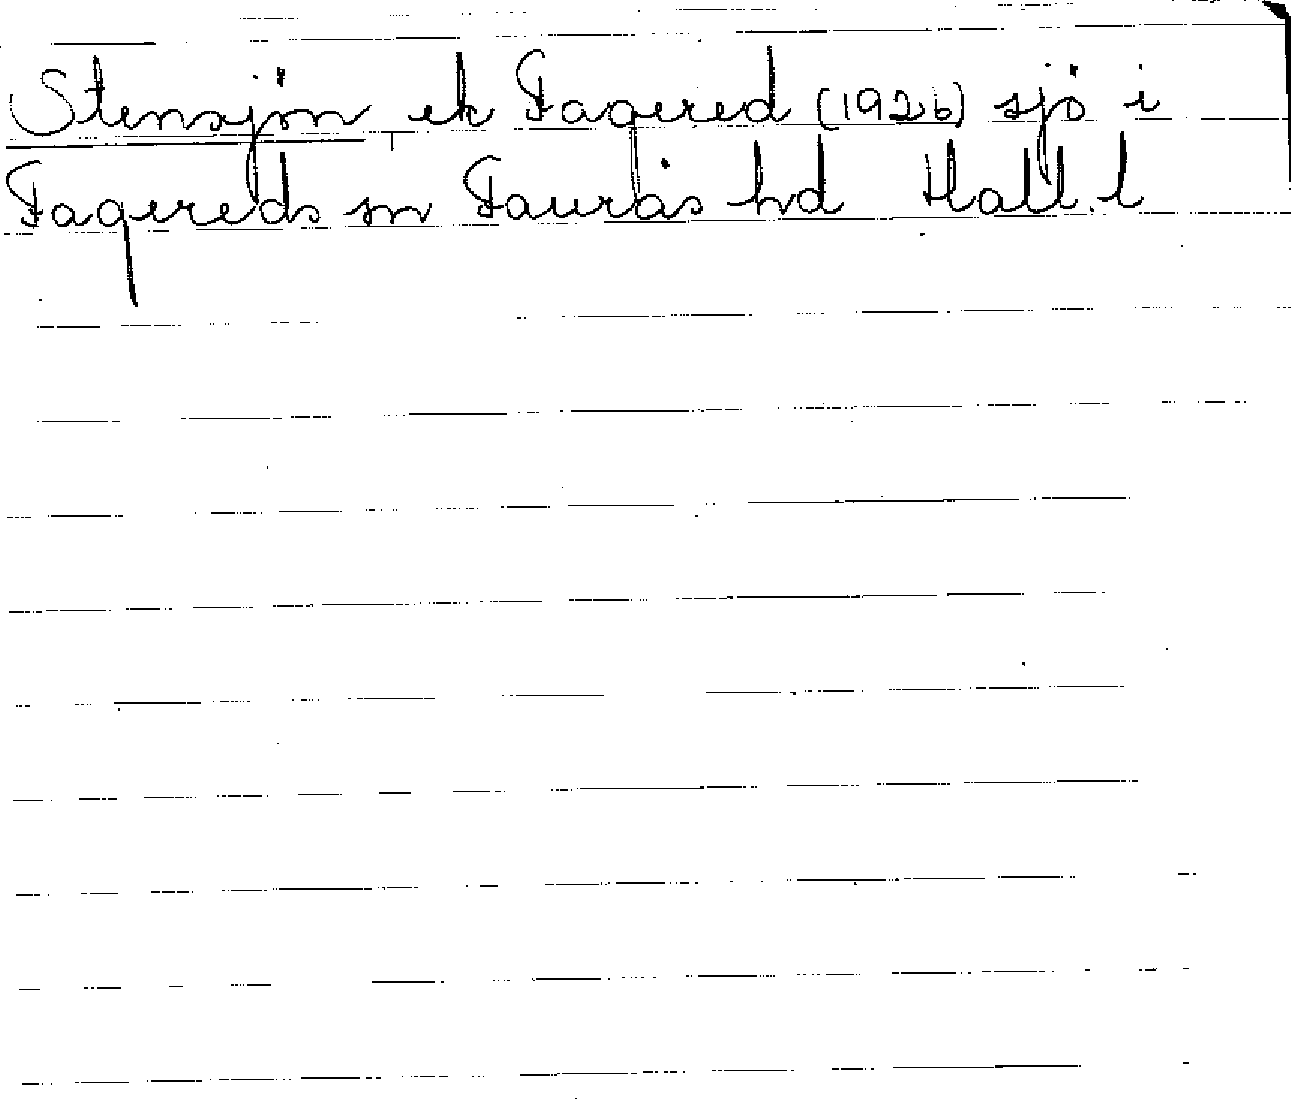 Stensjön, ek Fagered (1926) sjö i
Fagereds sn Faurås hd Hall. l